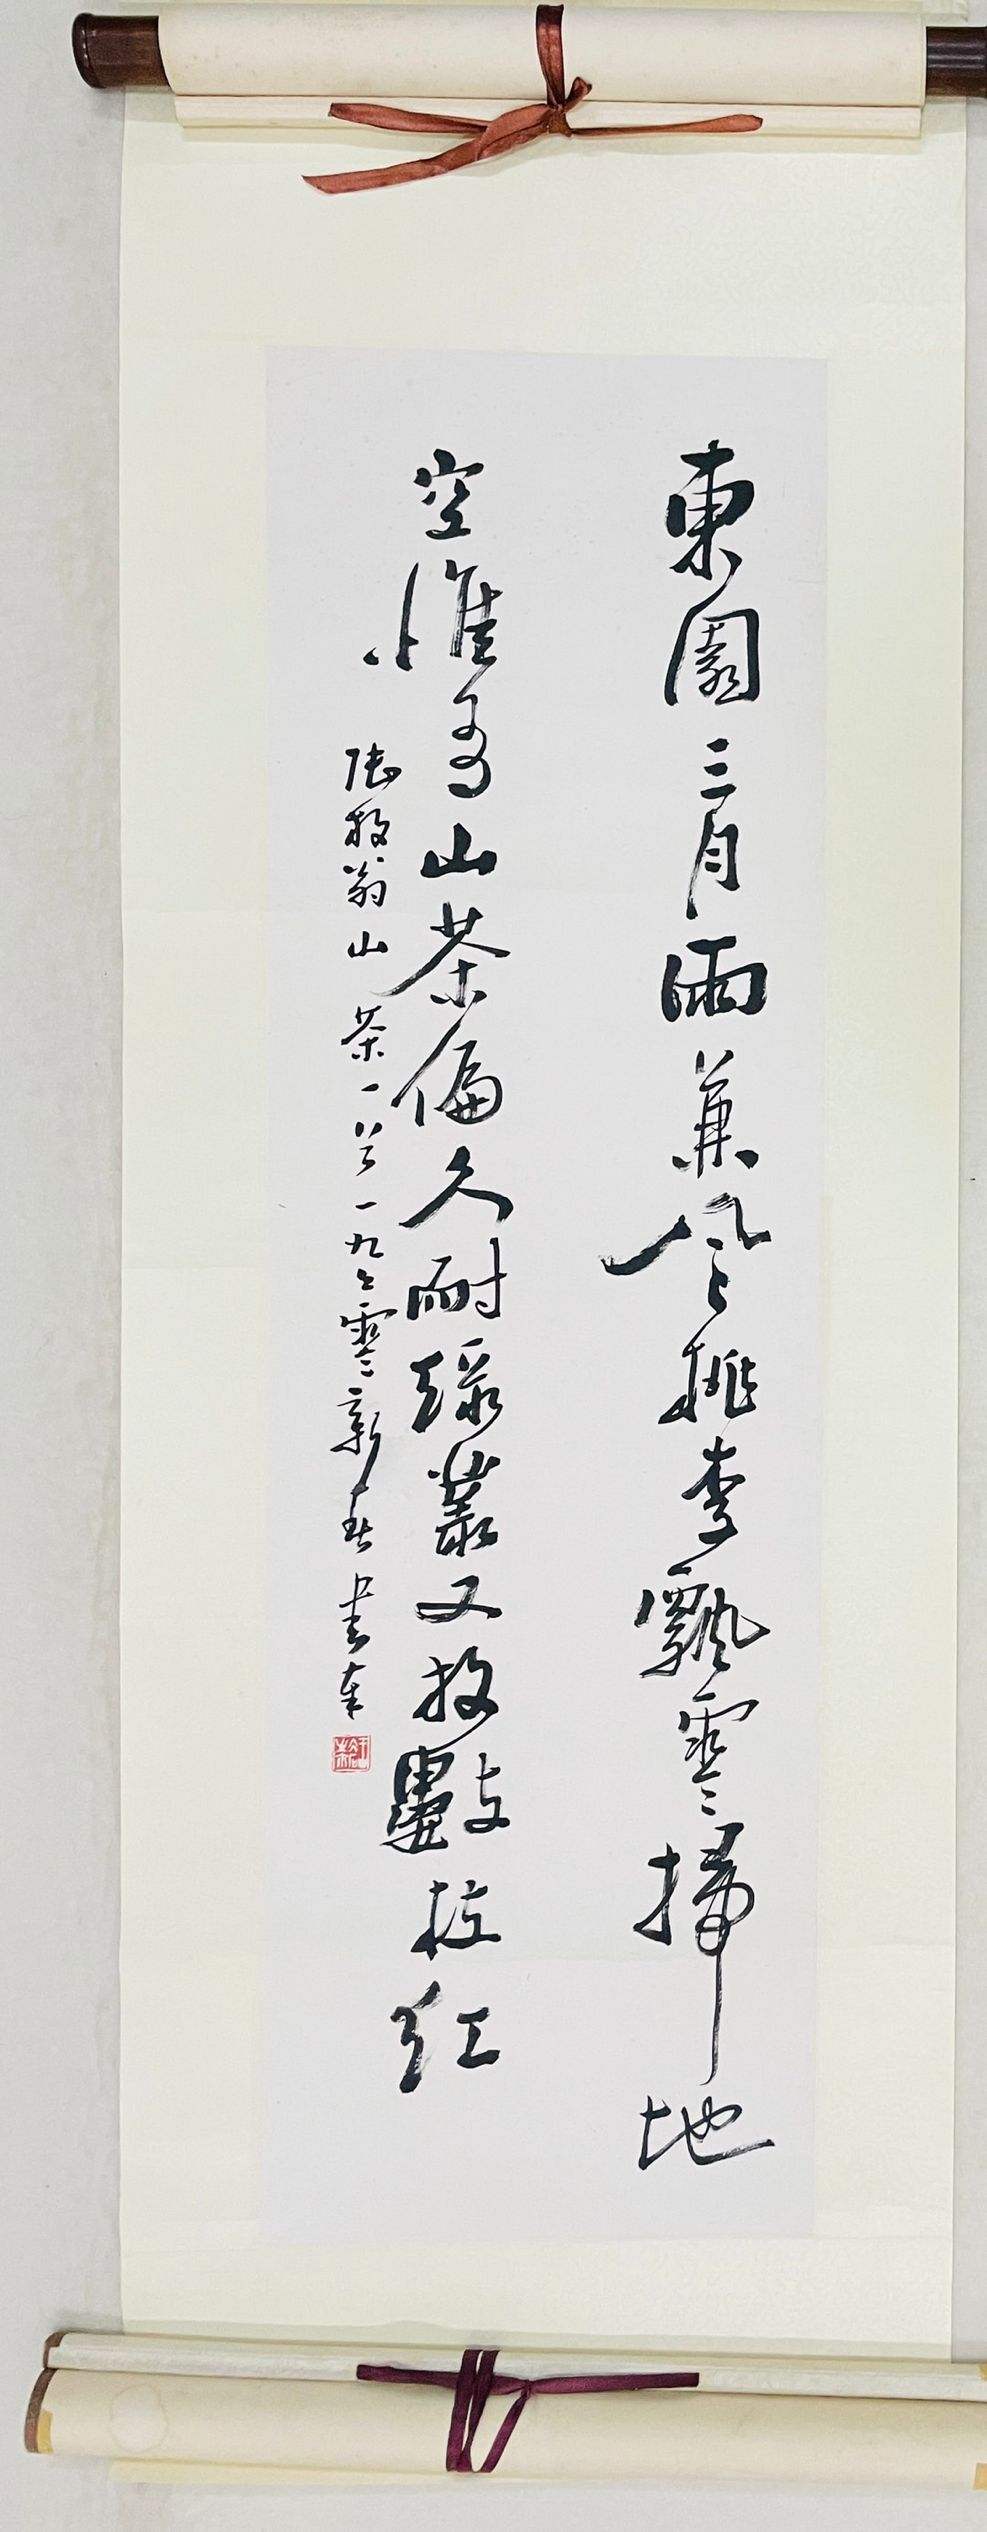 東園三月雨兼風桃李飄零掃地
空惟有山茶偏久耐綠叢又放數枝紅
陸放翁山茶一首一九七零新春書奉